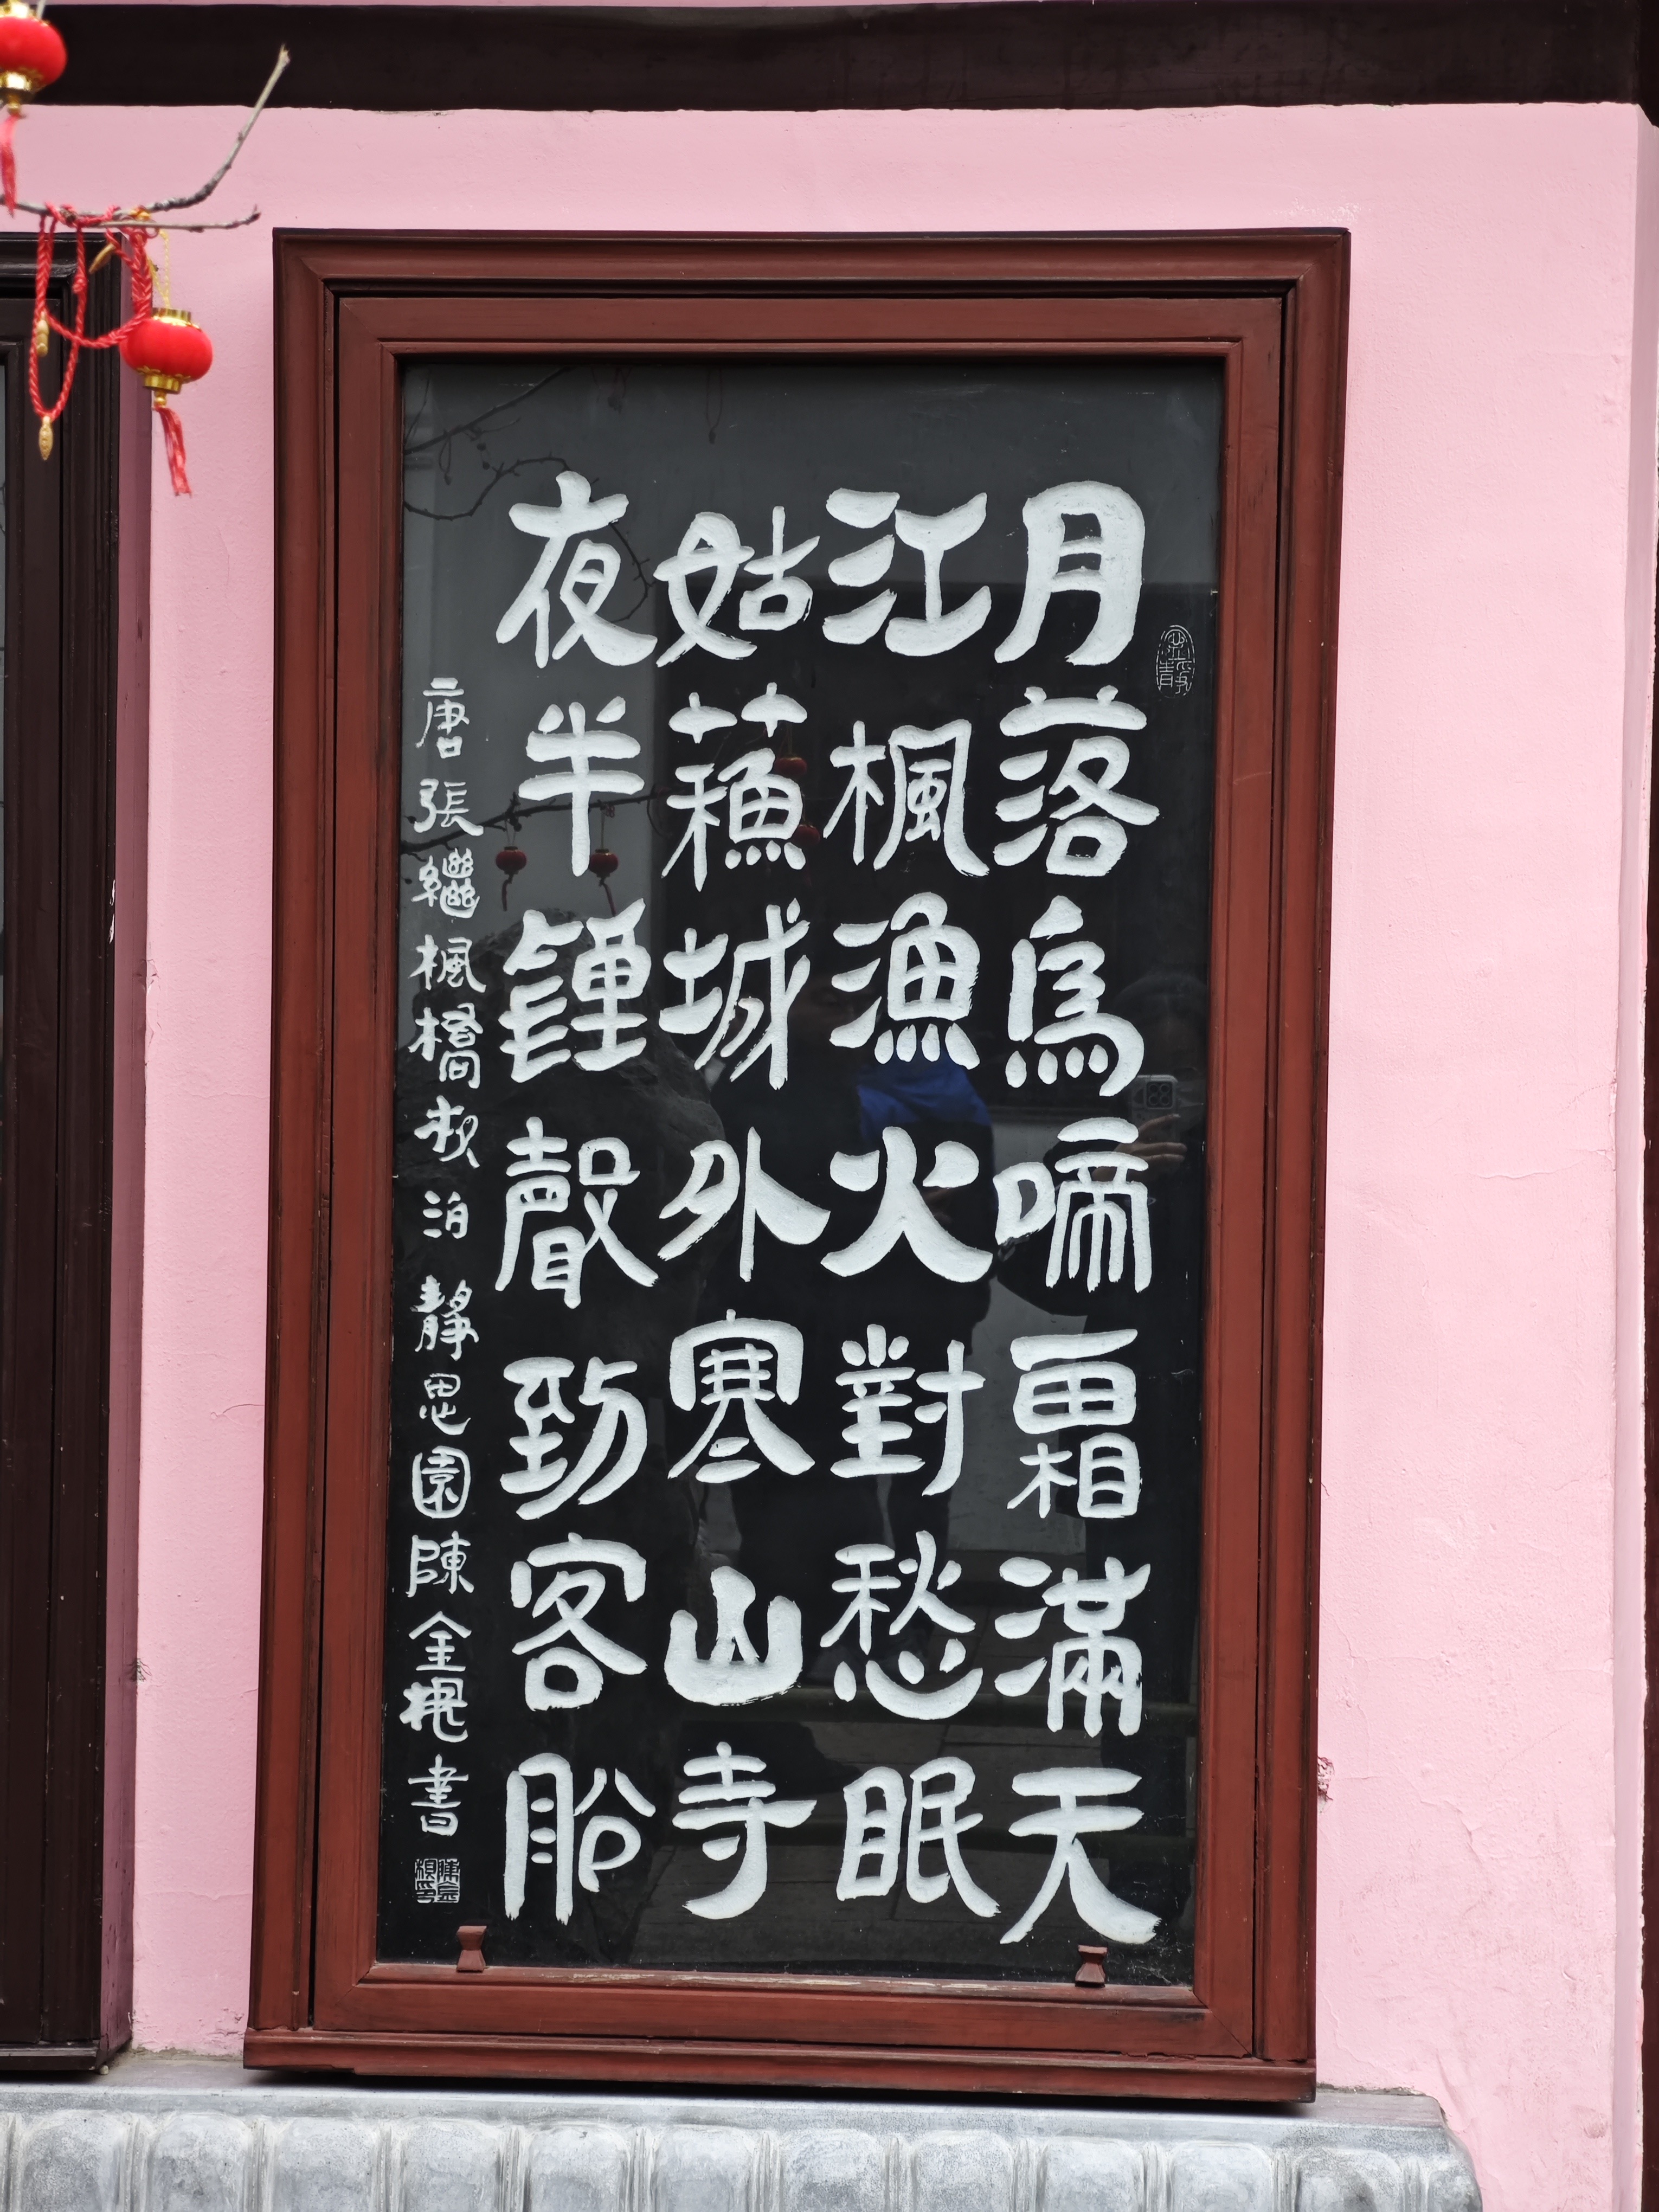 月落烏啼霜滿天
江楓漁火對愁眠
姑蘓城外寒山寺
夜半鍾聲到客船
唐張繼楓橋夜泊 靜思園陳金根書